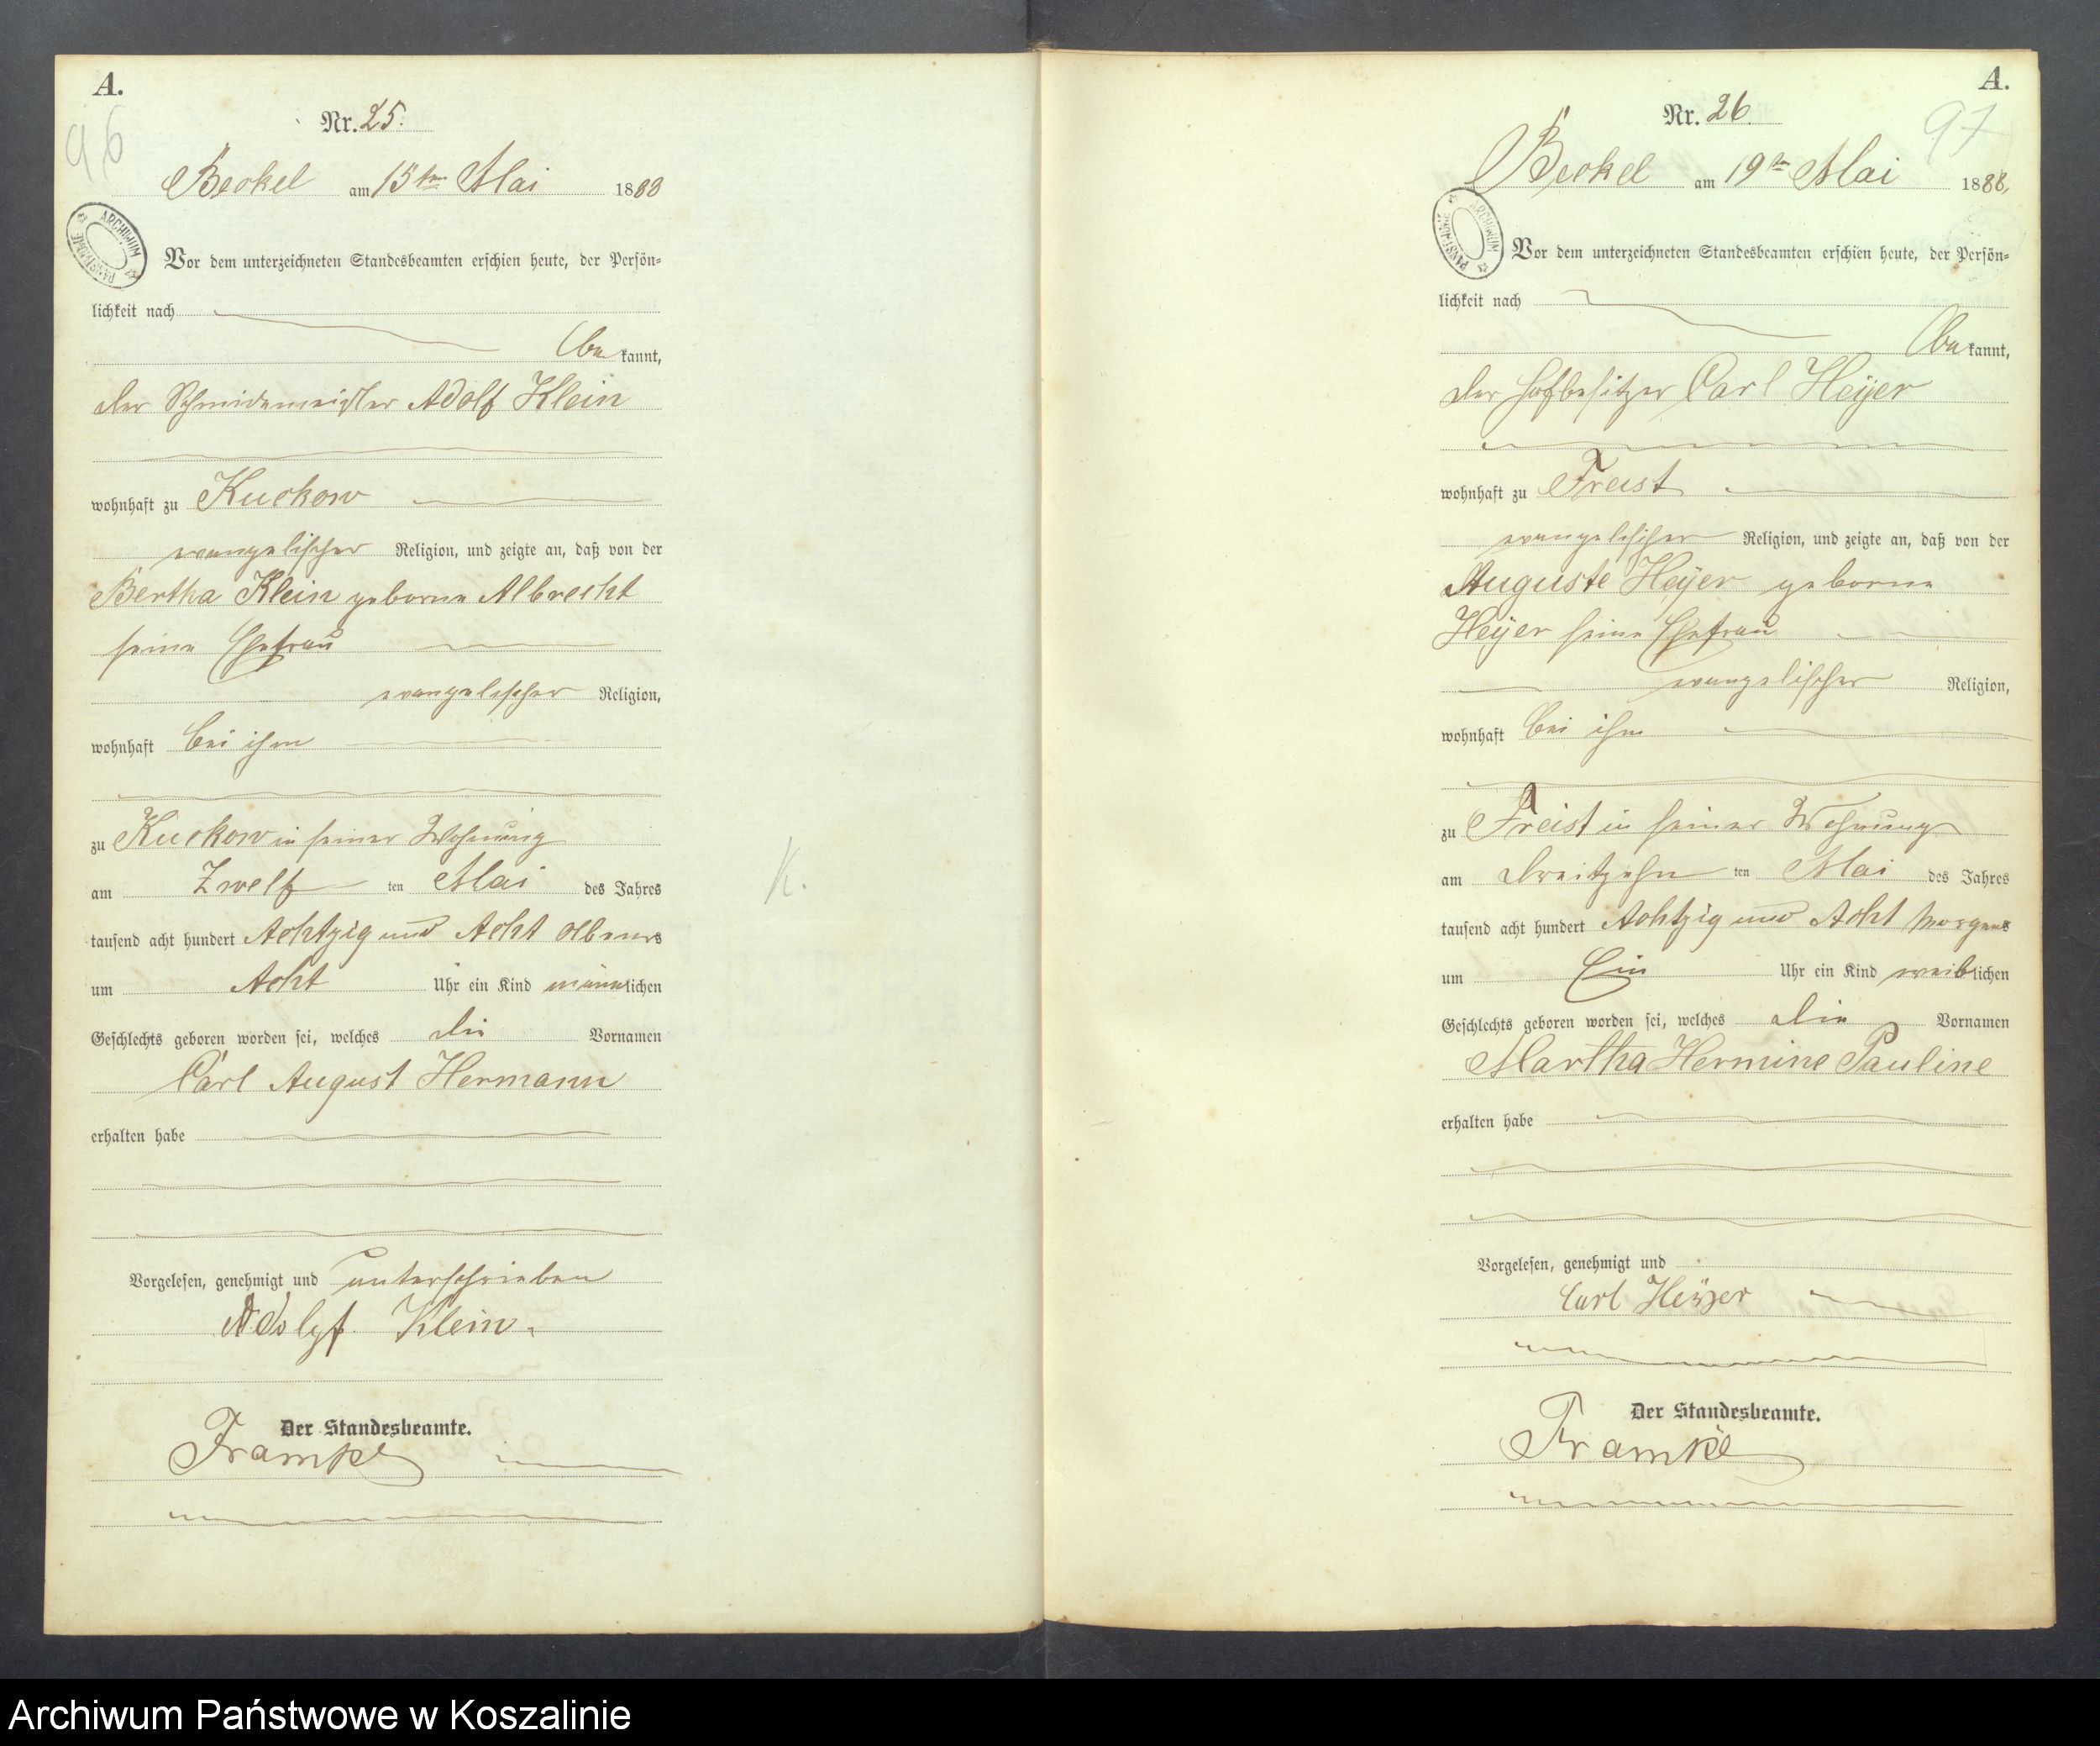 A.
96
Nr. 25.
Beckel am 15ten Mai 1888
ARCHIWUM PAŃSTWOWE
Vor dem unterzeichneten Standesbeamten erschien heute, der Persön-
lichkeit nach
bekannt,
der Schmidemeister Adolf Klein
wohnhaft zu Kuckow
evangelischer Religion, und zeigte an, daß von der
Bertha Klein geborne Albrecht
seine Ehefrau
evangelischer Religion,
wohnhaft bei ihm
zu Kuckow in seiner Wohnung
am Zwelf ten Mai des Jahres
tausend acht hundert Achtzig und Acht Abends
um Acht Uhr ein Kind männlichen
Geschlechts geboren worden sei, welches die Vornamen
Carl August Hermann
erhalten habe
Vorgelesen, genehmigt und unterschrieben
Adolf Klein.
Der Standesbeamte.
Framke
K.
A.
97
Nr. 26.
Beckel am 19ten Mai 1888,
ARCHIWUM PAŃSTWOWE
Vor dem unterzeichneten Standesbeamten erschien heute, der Persön-
lichkeit nach
bekannt,
der Hofbesitzer Carl Heÿer
wohnhaft zu Freist
evangelischer Religion, und zeigte an, daß von der
Auguste Heÿer geborne
Heÿer seine Ehefrau
evangelischer Religion,
wohnhaft bei ihm
zu Freist in seiner Wohnung
am dreitzehn ten Mai des Jahres
tausend acht hundert Achtzig und Acht Morgens
um Ein Uhr ein Kind weiblichen
Geschlechts geboren worden sei, welches die Vornamen
Martha Hermine Pauline
erhalten habe
Vorgelesen, genehmigt und
Carl Heÿer
Der Standesbeamte.
Framke
Archiwum Państwowe w Koszalinie